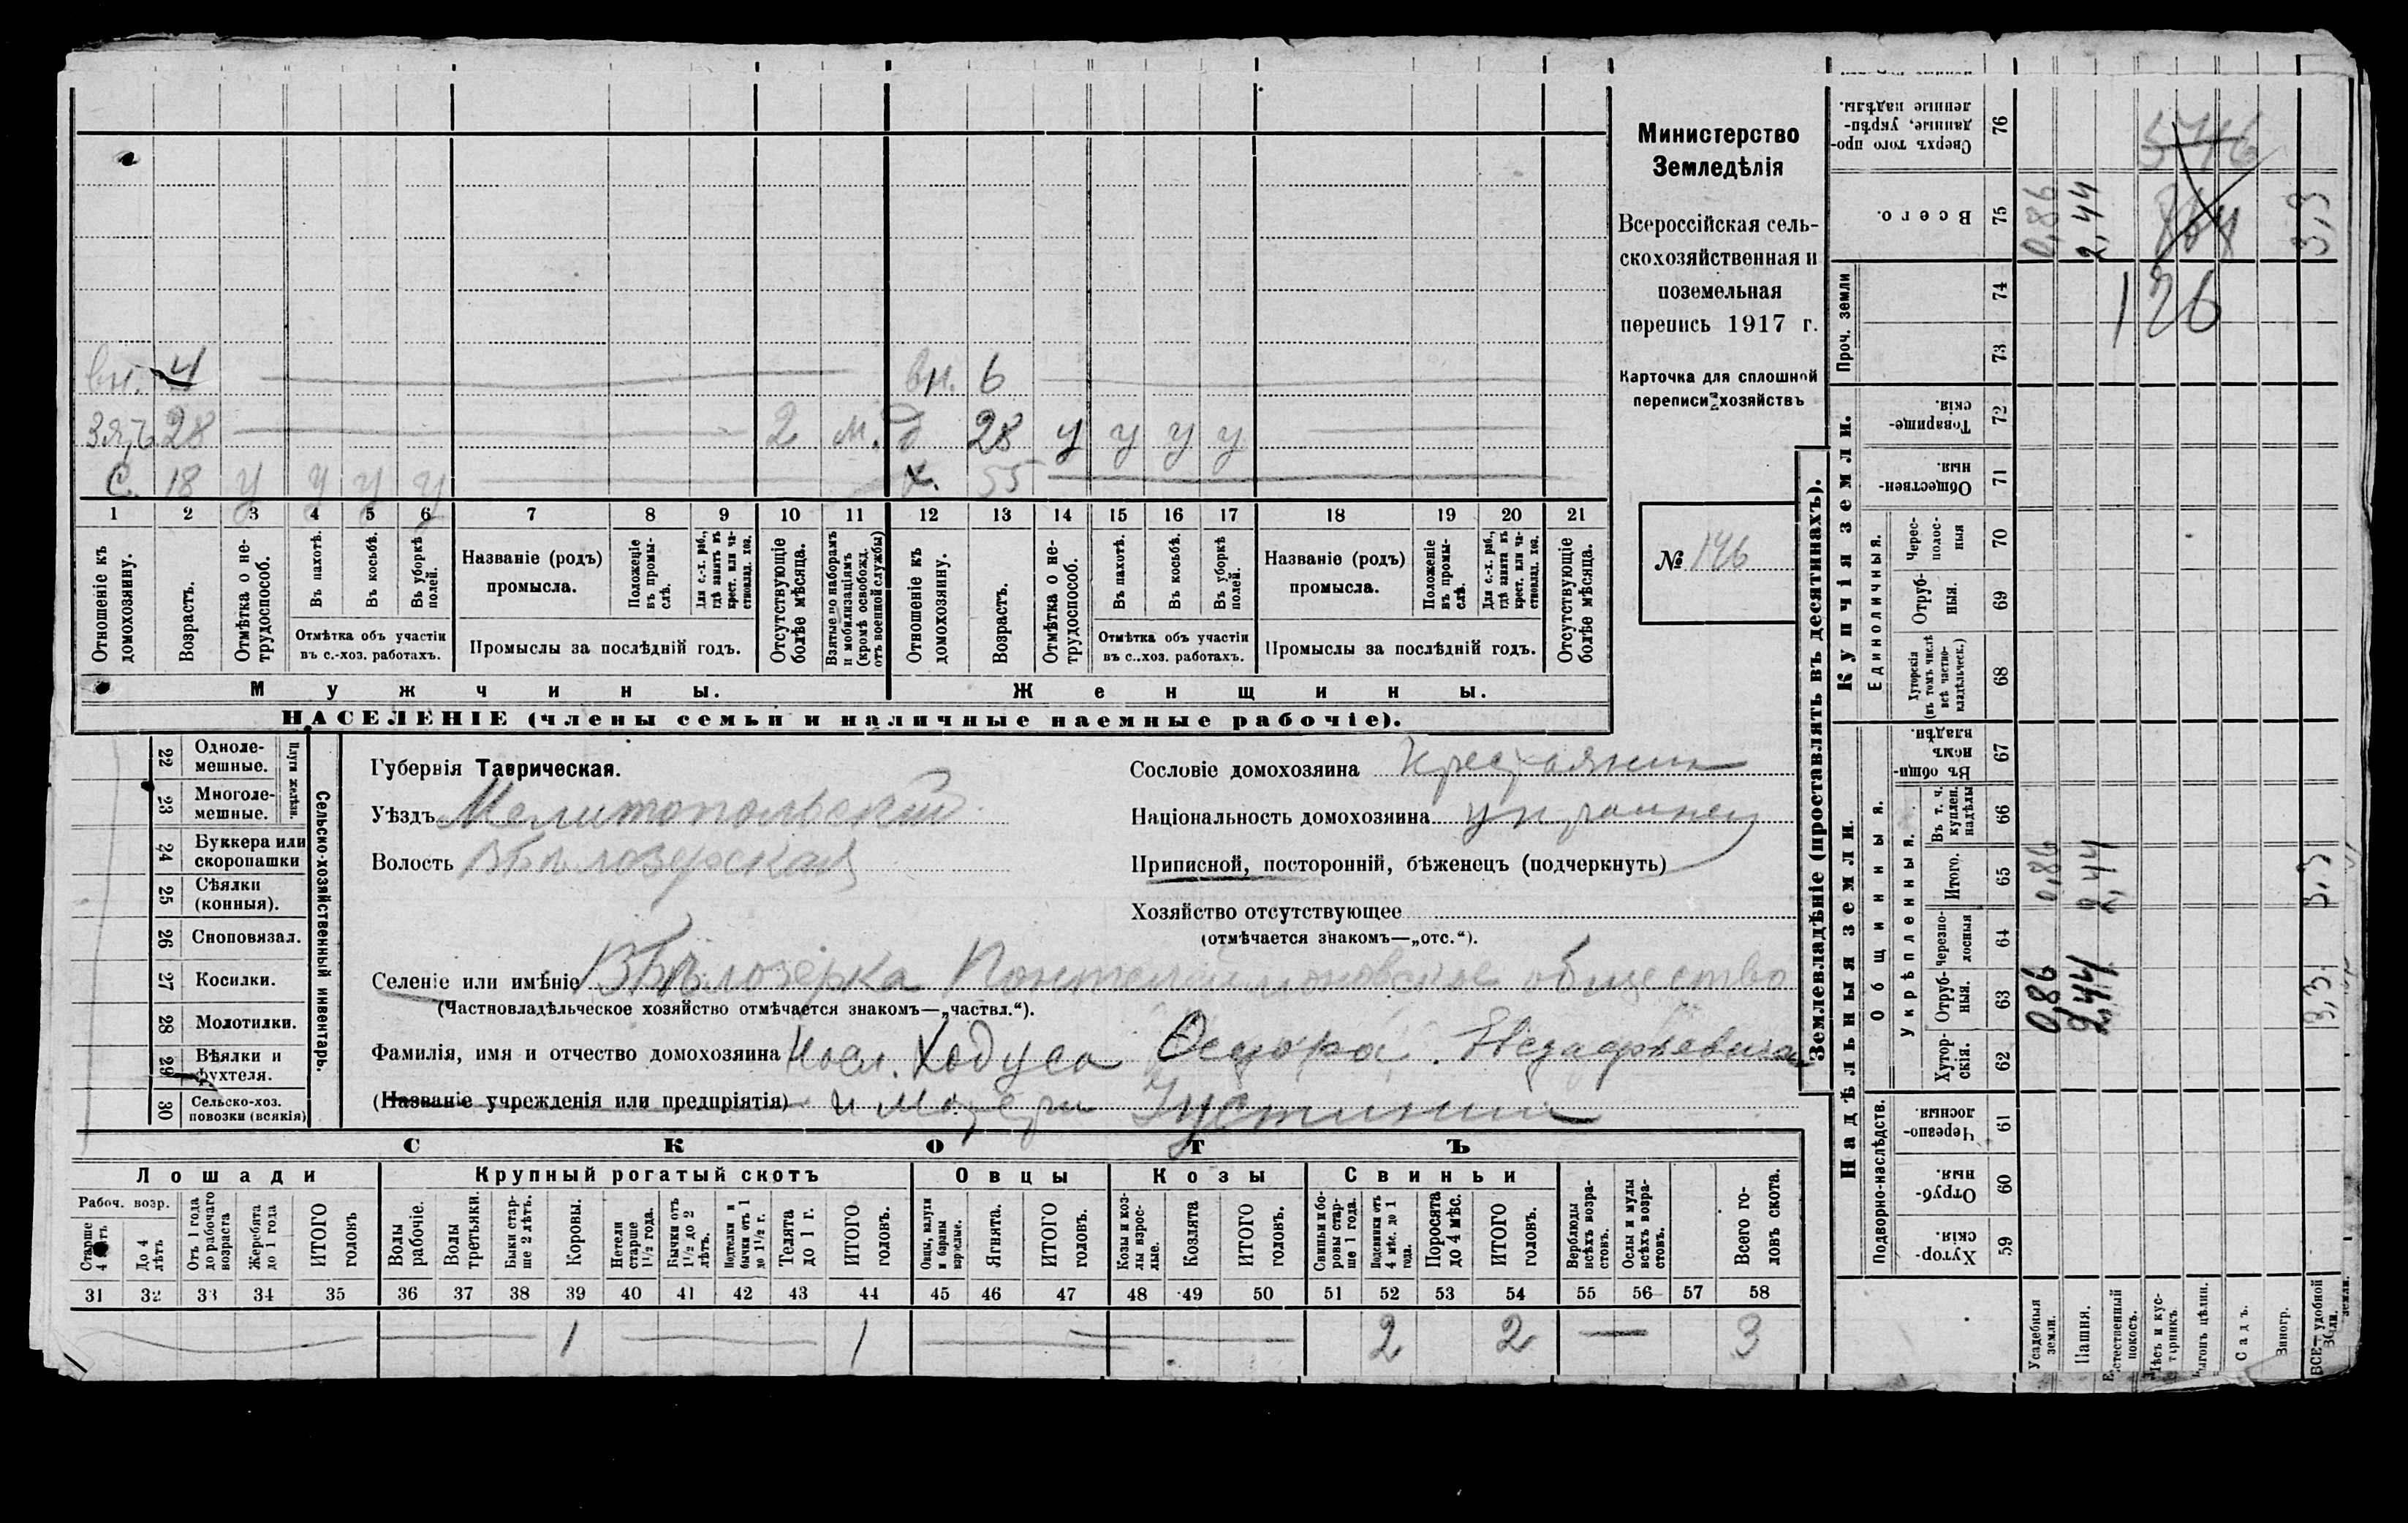 Министерство
Земледѣлія
Всероссійская сель-
скохозяйственная и
поземельная
перепись 1917 г.
Карточка для сплошной
переписи хозяйствъ
№ 146
вн. 4 вн. 6
Зять 28 2 м. д 28 у у у у
С. 18 у у у у х. 55
1 2 3 4 5 6 7 8 9 10 11 12 13 14 15 16 17 18 19 20 21
Отношеніе къ домохозяину.
Возрастъ.
Отмѣтка о не-трудоспособ.
Въ пахотѣ.
Въ косьбѣ.
Въ уборкѣ полей.
Отмѣтка объ участіи
въ с.-хоз. работахъ.
Названіе (родъ)
промысла.
Положеніе въ промы-слѣ.
Для с.-х. раб., гдѣ занятъ въ крест. или ча-стновлад. хоз.
Промыслы за послѣдній годъ.
Отсутствующіе болѣе мѣсяца.
Взятые по наборамъ и мобилизаціямъ (кромѣ освобожд. отъ военной службы)
Отношеніе къ домохозяину.
Возрастъ.
Отмѣтка о не-трудоспособ.
Въ пахотѣ.
Въ косьбѣ.
Въ уборкѣ полей.
Отмѣтка объ участіи
въ с..хоз. работахъ.
Названіе (родъ)
промысла.
Положеніе въ промы-слѣ.
Для с.-х. раб., гдѣ занятъ въ крест. или ча-стновлад. хоз.
Промыслы за послѣдній годъ.
Отсутствующіе болѣе мѣсяца.
Мужчины. Женщины.
НАСЕЛЕНІЕ (члены семьи и наличные наемные рабочіе).
Сельско-хозяйственный инвентарь.
Плуги желѣзн.
22 Одноле-мешные.
23 Многоле-мешные.
24 Буккера или скоропашки
25 Сѣялки (конныя).
26 Сноповязал.
27 Косилки.
28 Молотилки.
29 Вѣялки и фухтеля.
30 Сельско-хоз. повозки (всякія)
Губернія Таврическая.
Уѣздъ Мелитопольскій
Волость Бѣлозерская
Сословіе домохозяина Крестьянин
Національность домохозяина украинец
Приписной, посторонній, бѣженецъ (подчеркнуть)
Хозяйство отсутствующее
(отмѣчается знакомъ—„отс.“).
Селеніе или имѣніе Бѣлозерка Пантелеймоновское общество
(Частновладѣльческое хозяйство отмѣчается знакомъ—„частвл.“).
Фамилія, имя и отчество домохозяина Насл. Ходуса Ѳедора
(Названіе учрежденія или предпріятія) и матери Густинии
СКОТЪ
Лошади Крупный рогатый скотъ Овцы Козы Свиньи
Рабоч. возр.
Старше 4 лѣтъ
До 4 лѣтъ
Отъ 1 года до рабочаго возраста
Жеребята до 1 года
ИТОГО головъ
Волы рабочіе.
Волы третьяки.
Быки стар-ше 2 лѣтъ.
Коровы.
Нетели старше 1½ года.
Бычки отъ 1½ до 2 лѣтъ.
Подтелки и бычки отъ 1 до 1½ г.
Телята до 1 г.
ИТОГО головъ.
Овцы, валухи и бараны взрослые.
Ягнята.
ИТОГО головъ.
Козы и коз-лы взрос-лые.
Козлята
ИТОГО головъ.
Свиньи и бо-ровы стар-ше 1 года.
Подсвинки отъ 4 мѣс. до 1 года.
Поросята до 4 мѣс.
ИТОГО головъ.
Верблюды всѣхъ возра-стовъ.
Ослы и мулы всѣхъ возра-стовъ.
Всего го-ловъ скота.
31 32 33 34 35 36 37 38 39 40 41 42 43 44 45 46 47 48 49 50 51 52 53 54 55 56 57 58
1 1 2 2 3
Землевладѣніе (проставлять въ десятинахъ).
Сверхъ того про-данные, укрѣп-ленные надѣлы. 76
Всего. 75
Проч. земли 74
73
Купчія земли.
Товарище-скія. 72
Обществен-ныя. 71
Единоличныя.
Черес-полос-ныя 70
Отруб-ныя. 69
Хуторскія (въ томъ числѣ всѣ частно-владѣльческ.) 68
Надѣльныя земли.
Общинныя.
Въ общи-номъ владѣн. 67
Укрѣпленныя.
Въ т. ч. куплен. надѣлы 66
Итого. 65
Черезпо-лосныя 64
Отруб-ныя. 63
Хутор-скія. 62
Подворно-наслѣдств.
Черезпо-лосныя. 61
Отруб-ныя. 60
Хутор-скія. 59
Усадебныя земли. 0,86 0,86 0,86
Пашня. 2,44 2,44 2,44
Естественный покосъ.
Лѣсъ и кус-тарникъ
Выгонъ цѣлин.
Садъ.
Виногр.
ВСЕГО удобной земли. 3,3 3,3 3,3
126